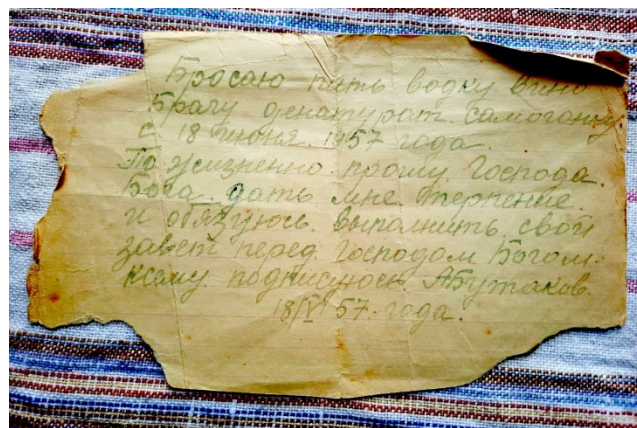 Бросаю пить водку вино
Брагу денатурат. самогонку
с 18 июня. 1957 года.
Пожизненно. прошу. Господа.
Бога. дать мне. терпение.
и обязуюсь. выполнить. свой
завет перед. Господом Богом.
ксему. подписуюсь. АБутаков.
18/VI 57. года.